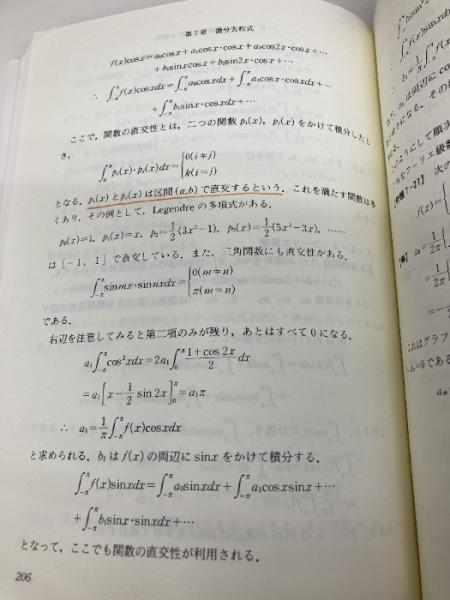 第7章 微分方程式
f(x)cosx=a₀cosx+a₁cosx·cosx+a₂cos2x·cosx+…
+b₁sinxcosx+b₂sin2x·cosx+…
∴ ∫_{-π}^{π}f(x)cosxdx=∫_{-π}^{π}a₀cosxdx+∫_{-π}^{π}a₁cosx·cosxdx+…
+∫_{-π}^{π}b₁sinx·cosxdx+…
ここで，関数の直交性とは，二つの関数 pᵢ(x)，pⱼ(x) をかけて積分したと
き，
∫_{a}^{b}pᵢ(x)·pⱼ(x)dx={0(i≠j)
k(i=j)
となる．pᵢ(x) と pⱼ(x) は区間 (a,b) で直交するという．これを満たす関数は多
くあり，その例として，Legendre の多項式がある．
p₀(x)=1, p₁(x)=x, p₂=1/2(3x²−1), p₃(x)=1/2(5x³−3x), ……
は [−1, 1] で直交している．また，三角関数にも直交性がある．
∫_{-π}^{π}sinmx·sinnxdx={0(m≠n)
π(m=n)
である．
右辺を注意してみると第二項のみが残り，あとはすべて 0 になる．
a₁∫_{-π}^{π}cos²xdx=2a₁∫_{0}^{π}(1+cos 2x)/2 dx
=a₁[x−1/2 sin 2x]_{0}^{π}=a₁π
∴ a₁=1/π∫_{-π}^{π}f(x)cosxdx
と求められる．b₁ は f(x) の両辺に sinx をかけて積分する．
∫_{-π}^{π}f(x)sinxdx=∫_{-π}^{π}a₀sinxdx+∫_{-π}^{π}a₁cosxsinx+…
+∫_{-π}^{π}b₁sinx·sinxdx+…
となって，ここでも関数の直交性が利用される．
206